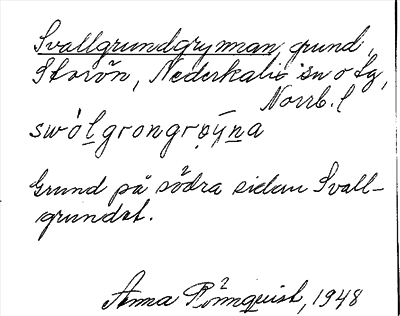 Svallgrundgrynnan, grund,
Storön, Nederkalix sn o tg,
Norrb. l
swólgrongrøýna
Grund på södra sidan Svall-
grundet.
Anna Rönnquist, 1948